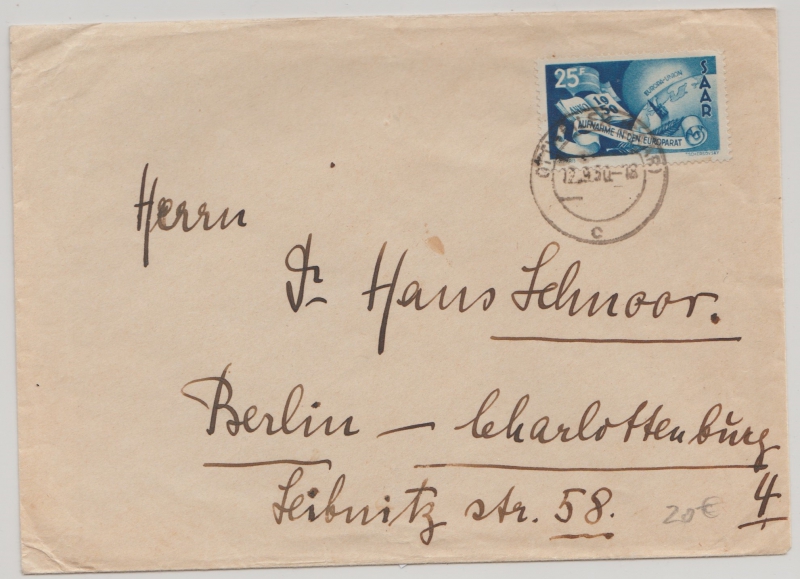 25F
SAAR
EUROPA-UNION
ANNO 1950
AUFNAHME IN DEN EUROPARAT
12.9.50-18
c
Herrn
Dr Hans Schnoor.
Berlin — Charlottenburg
4
Leibnitz str. 58.
20€